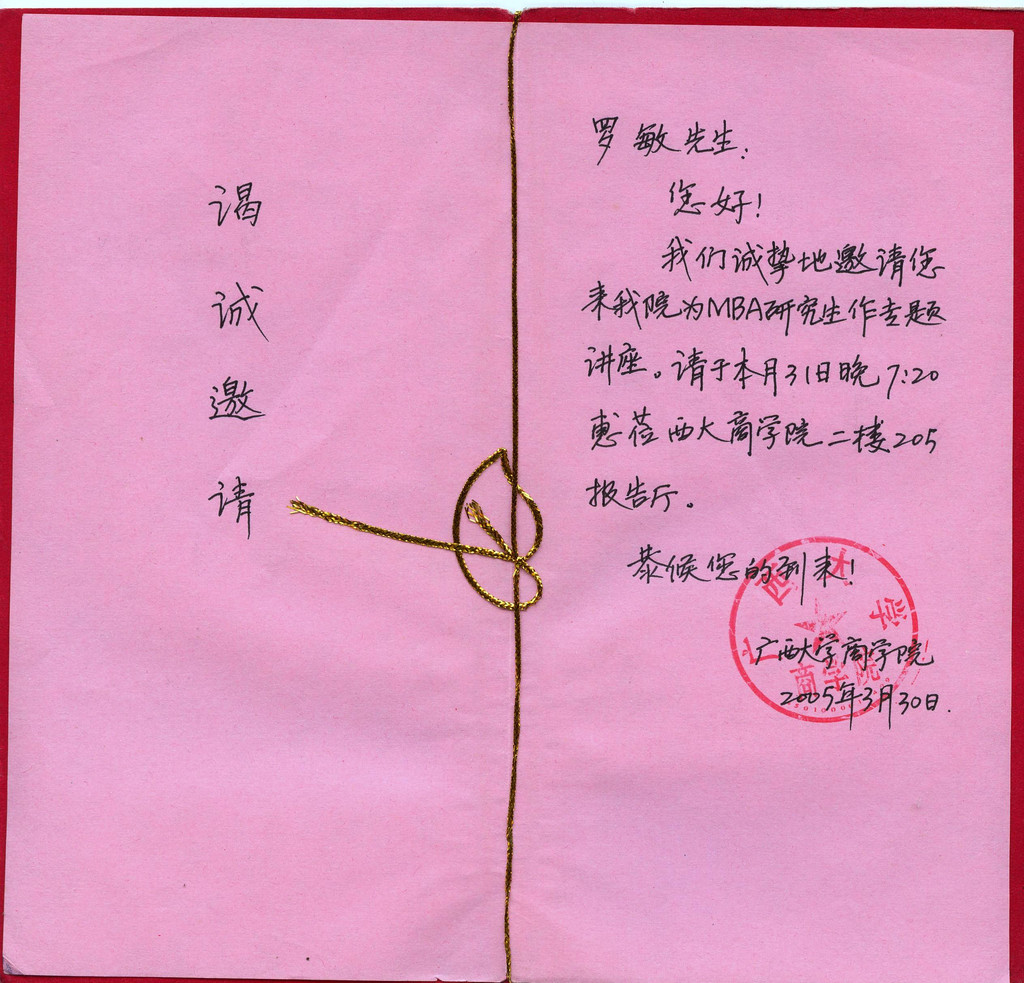 谒
诚
邀
请
罗敏先生:
您好!
我们诚挚地邀请您
来我院为MBA研究生作专题
讲座。请于本月31日晚7:20
惠莅西大商学院二楼205
报告厅。
恭候您的到来!
广西大学商学院
2005年3月30日.
广西大学
商学院